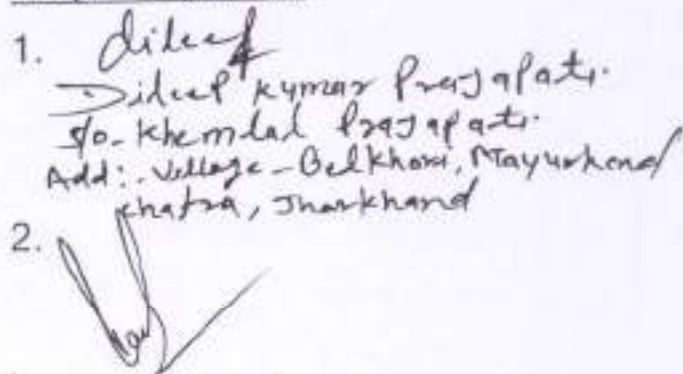 1. dileep
Dileep kymar Prajapati.
S/o- Khemlal Prajapati.
Add:- Village- Belkhori, Mayurhand
chatra, Jharkhand
2.